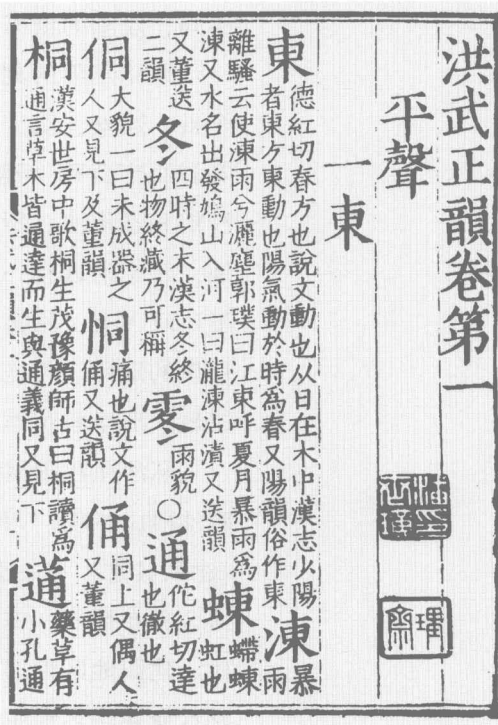 洪武正韻卷第一
平聲
一東
東德紅切春方也說文動也从日在木中漢志少陽
者東方東動也陽氣動於時為春又陽韻俗作東涷暴
雨
離騷云使涷雨兮灑塵郭璞曰江東呼夏月暴雨為
涷又水名出發鳩山入河一曰瀧涷沾漬又送韻蝀螮蝀
虹也
又董送
二韻冬四時之末漢志冬終
也物終藏乃可稱䨦雨貌○通佗紅切達
也徹也
侗大貌一曰未成器之
人又見下及董韻恫痛也說文作
俑又送韻俑同上又偶人
又董韻
桐漢安世房中歌桐生茂豫顏師古曰桐讀為
通言草木皆通達而生與通義同又見下蓪藥草有
小孔通